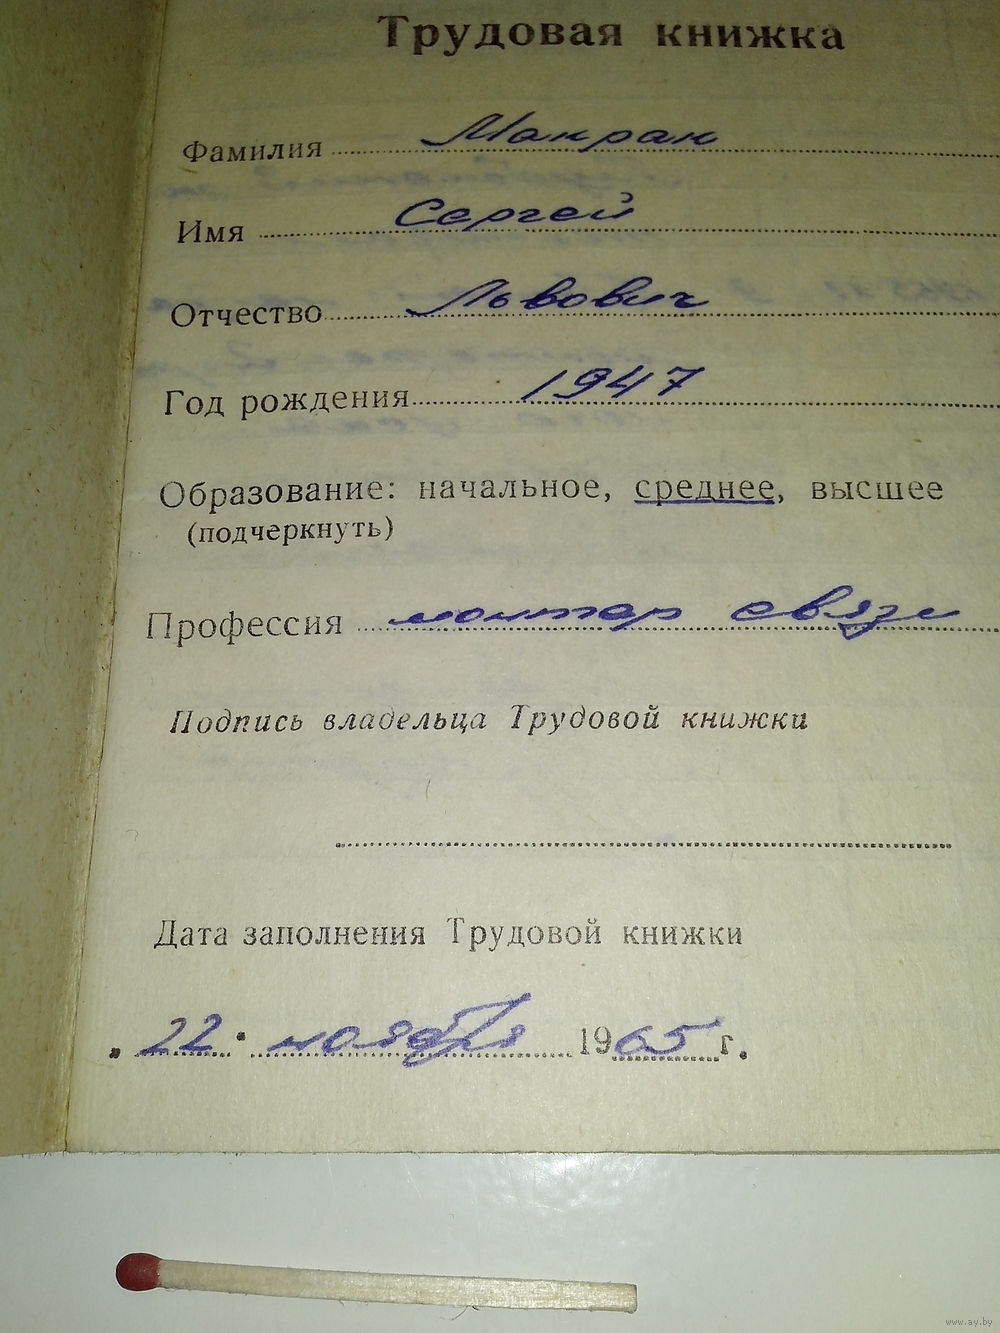 Трудовая книжка
Фамилия Макран
Имя Сергей
Отчество Львович
Год рождения 1947
Образование: начальное, среднее, высшее
(подчеркнуть)
Профессия монтер связи
Подпись владельца Трудовой книжки
Дата заполнения Трудовой книжки
„22" ноября 1965 г.
www.ay.by